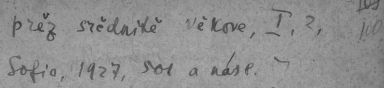 prěz srědnitě věkove, I, 2,
Sofia, 1927, 501 a násl.